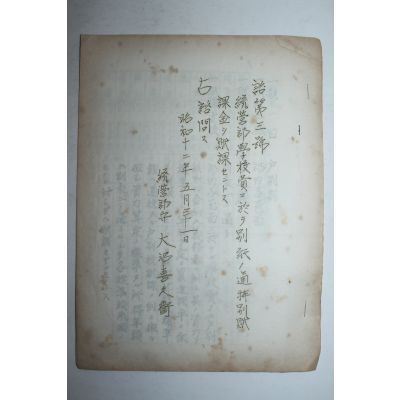 諮第三號
統營郡學校費ニ於テ別紙ノ通特別賦
課金ヲ賦課セントス
右諮問ス
昭和十二年五月三十一日
統營郡守 大沼善夫